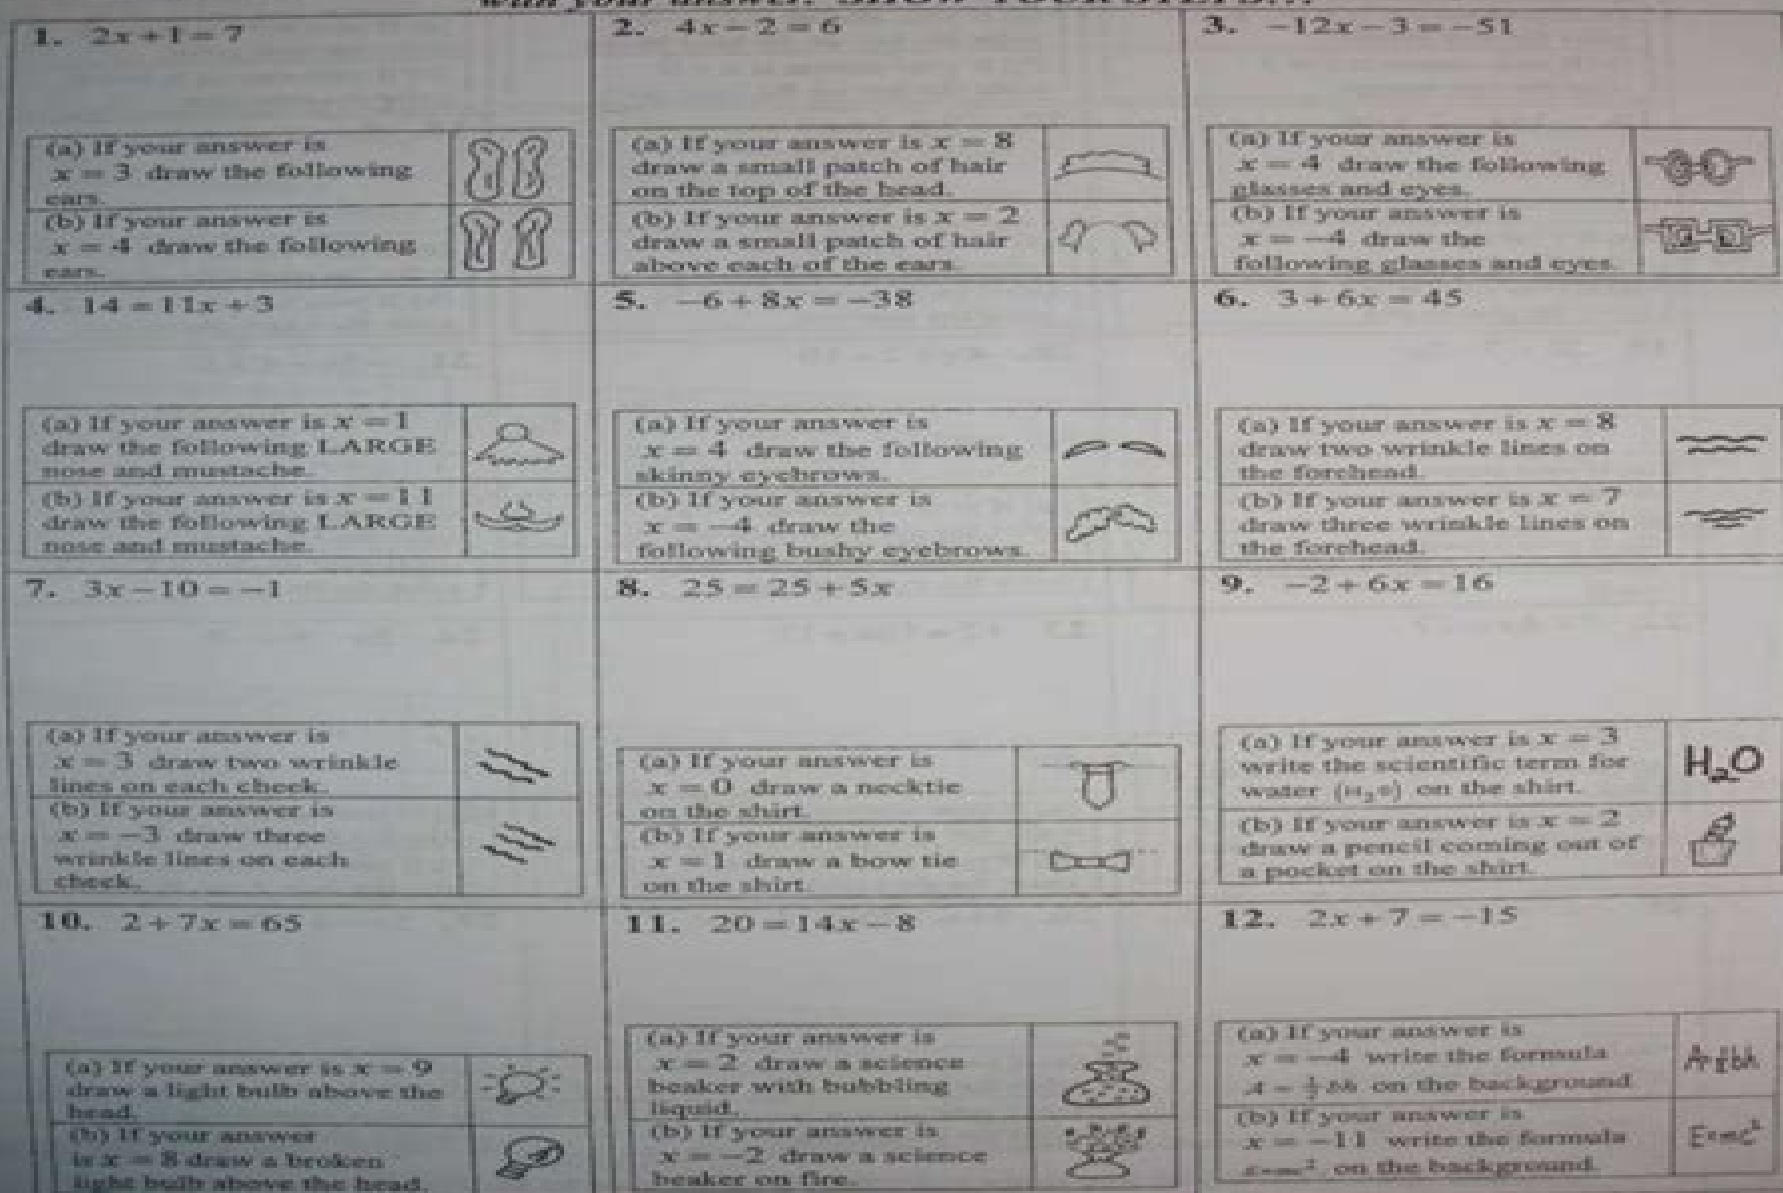 with your answer. SHOW YOUR STEPS...
1. 2x + 1 = 7
(a) If your answer is
x = 3 draw the following
ears.
(b) If your answer is
x = 4 draw the following
ears.
2. 4x − 2 = 6
(a) If your answer is x = 8
draw a small patch of hair
on the top of the head.
(b) If your answer is x = 2
draw a small patch of hair
above each of the ears.
3. −12x − 3 = −51
(a) If your answer is
x = 4 draw the following
glasses and eyes.
(b) If your answer is
x = −4 draw the
following glasses and eyes.
4. 14 = 11x + 3
(a) If your answer is x = 1
draw the following LARGE
nose and mustache.
(b) If your answer is x = 11
draw the following LARGE
nose and mustache.
5. −6 + 8x = −38
(a) If your answer is
x = 4 draw the following
skinny eyebrows.
(b) If your answer is
x = −4 draw the
following bushy eyebrows.
6. 3 + 6x = 45
(a) If your answer is x = 8
draw two wrinkle lines on
the forehead.
(b) If your answer is x = 7
draw three wrinkle lines on
the forehead.
7. 3x − 10 = −1
(a) If your answer is
x = 3 draw two wrinkle
lines on each cheek.
(b) If your answer is
x = −3 draw three
wrinkle lines on each
cheek.
8. 25 = 25 + 5x
(a) If your answer is
x = 0 draw a necktie
on the shirt.
(b) If your answer is
x = 1 draw a bow tie
on the shirt.
9. −2 + 6x = 16
(a) If your answer is x = 3
write the scientific term for
water (H₂O) on the shirt.
H₂O
(b) If your answer is x = 2
draw a pencil coming out of
a pocket on the shirt.
10. 2 + 7x = 65
(a) If your answer is x = 9
draw a light bulb above the
head.
(b) If your answer
is x = 8 draw a broken
light bulb above the head.
11. 20 = 14x − 8
(a) If your answer is
x = 2 draw a science
beaker with bubbling
liquid.
(b) If your answer is
x = −2 draw a science
beaker on fire.
12. 2x + 7 = −15
(a) If your answer is
x = −4 write the formula
A = ½bh on the background
A=½bh
(b) If your answer is
x = −11 write the formula
E=mc² on the background.
E=mc²